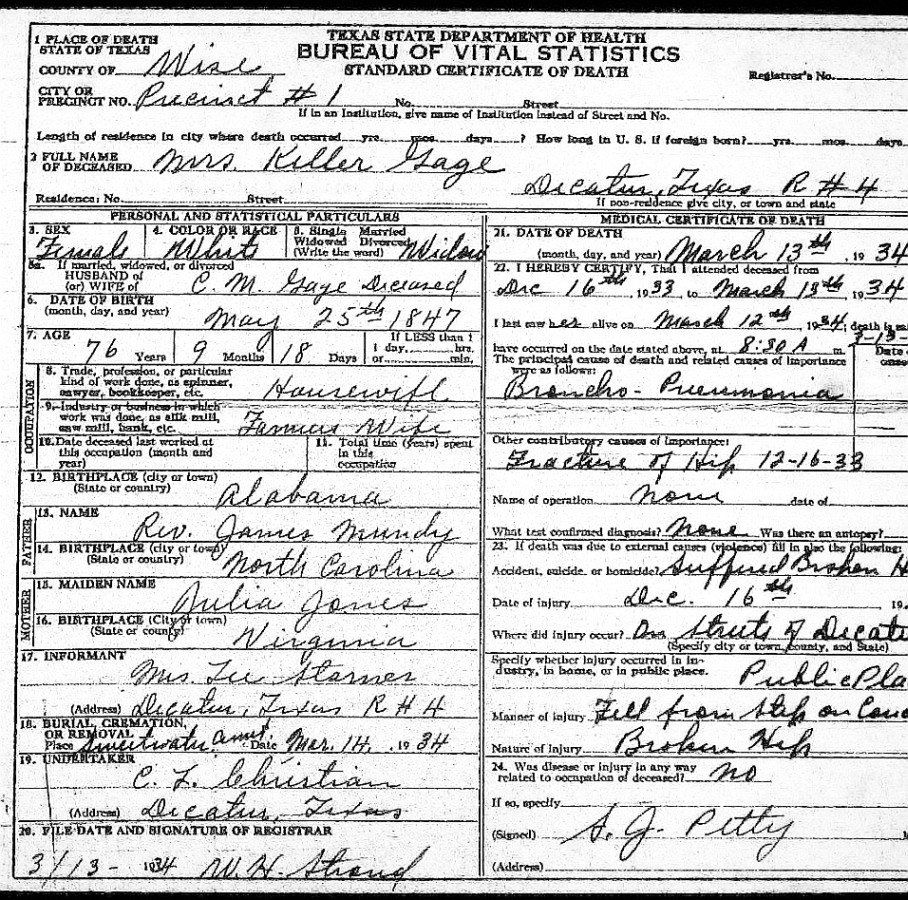 TEXAS STATE DEPARTMENT OF HEALTH
BUREAU OF VITAL STATISTICS
STANDARD CERTIFICATE OF DEATH
1 PLACE OF DEATH
STATE OF TEXAS
COUNTY OF Wise
Registrar's No.
CITY OR
PRECINCT NO. Precinct # 1 No. Street
If in an Institution, give name of Institution instead of Street and No.
Length of residence in city where death occurred yrs. mos. days ? How long in U. S. if foreign born? yrs. mos. days
2 FULL NAME
OF DECEASED Mrs. Killer Gage
Decatur, Texas R # 4
Residence: No. Street
If non-residence give city, or town and state
PERSONAL AND STATISTICAL PARTICULARS
3. SEX Female
4. COLOR OR RACE White
5. Single Married
Widowed Divorced
(Write the word) Widow
5a. If married, widowed, or divorced
HUSBAND of
(or) WIFE of C. M. Gage Deceased
6. DATE OF BIRTH
(month, day, and year) May 25th 1847
7. AGE 76 Years 9 Months 18 Days
If LESS than 1
1 day, hrs.
or min.
OCCUPATION
8. Trade, profession, or particular
kind of work done, as spinner,
sawyer, bookkeeper, etc. Housewife
9. Industry or business in which
work was done, as silk mill,
saw mill, bank, etc. Farmers Wife
10. Date deceased last worked at
this occupation (month and
year)
11. Total time (years) spent
in this
occupation
12. BIRTHPLACE (city or town)
(State or country) Alabama
FATHER
13. NAME Rev. James Mundy
14. BIRTHPLACE (city or town)
(State or country) North Carolina
MOTHER
15. MAIDEN NAME Julia Jones
16. BIRTHPLACE (City or town)
(State or county) Virginia
17. INFORMANT Mrs. Lee Starnes
(Address) Decatur, Texas R # 4
18. BURIAL, CREMATION,
OR REMOVAL
Place Sweetwater Date Mar. 14. 1934
19. UNDERTAKER C. L. Christian
(Address) Decatur, Texas
20. FILE DATE AND SIGNATURE OF REGISTRAR
3/13- 1934 W. H. Stroud
MEDICAL CERTIFICATE OF DEATH
21. DATE OF DEATH
(month, day, and year) March 13th, 1934
22. I HEREBY CERTIFY, That I attended deceased from
Dec 16th, 1933 to March 13th 1934
I last saw her alive on March 12th, 1934; death is
3-13-
have occurred on the date stated above, at 8:30 A m.
The principal cause of death and related causes of importance
were as follows:
Date of
Broncho-Pneumonia
Other contributory causes of importance:
Fracture of Hip 12-16-33
Name of operation None date of
What test confirmed diagnosis? None Was there an autopsy?
23. If death was due to external causes (violence) fill in also the following:
Accident, suicide, or homicide? Suffered Broken H
Date of injury Dec. 16th 19
Where did injury occur? On Streets of Decatu
(Specify city or town, county, and State)
Specify whether injury occurred in in-
dustry, in home, or in public place. Public Pla
Manner of injury Fell from Step on Conc
Nature of injury Broken Hip
24. Was disease or injury in any way
related to occupation of deceased? no
If so, specify
(Signed) S. J. Petty
(Address)